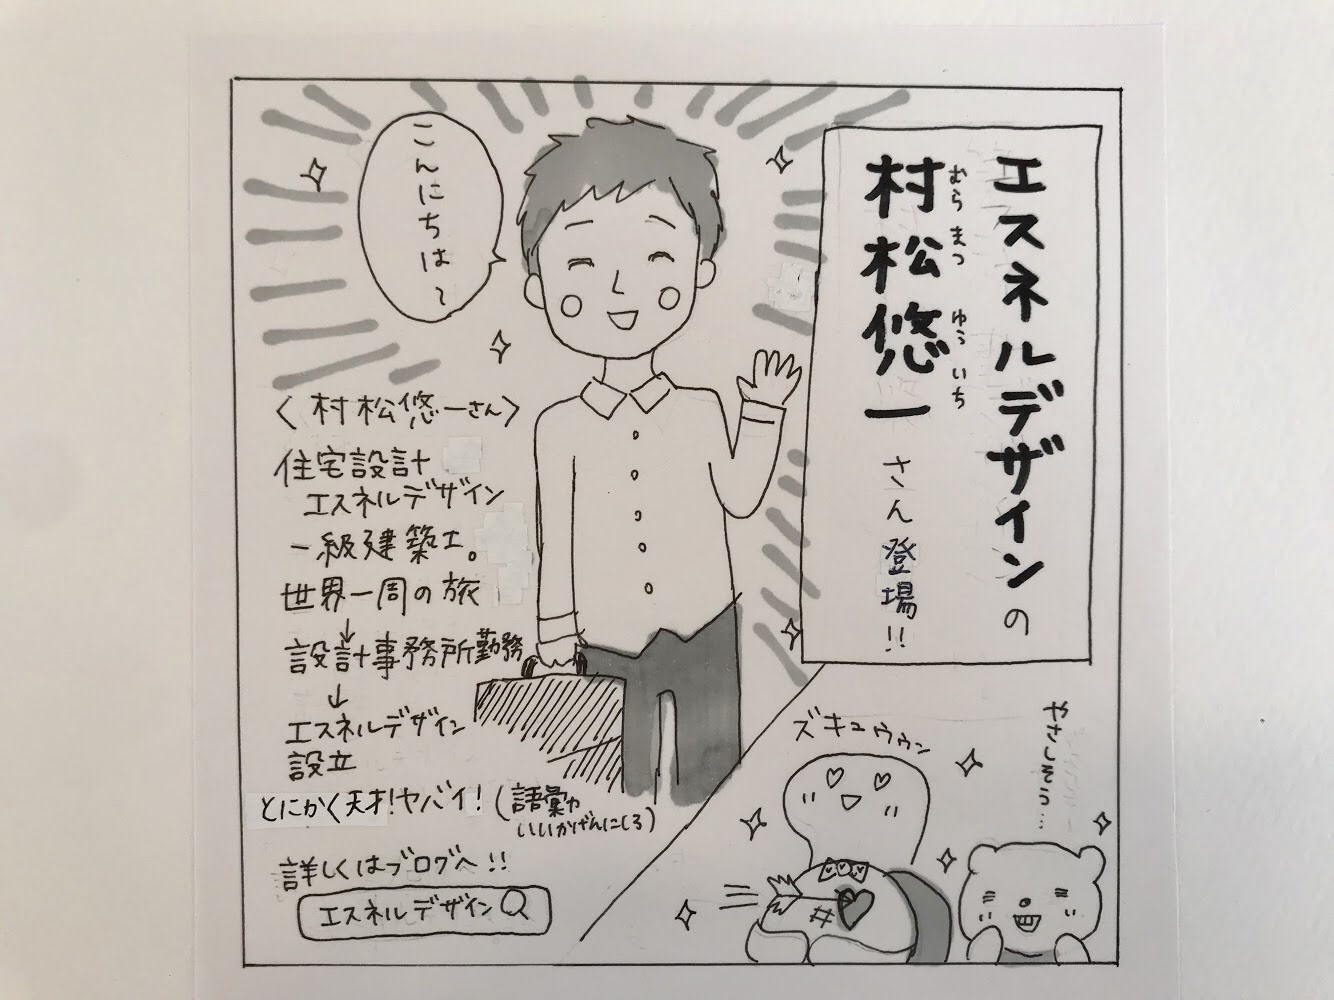 エスネルデザインの
村松悠一さん登場!!
むら まつ ゆう いち
こんにちは〜
〈村松悠一さん〉
住宅設計
エスネルデザイン
一級建築士。
世界一周の旅
↓
設計事務所勤務
↓
エスネルデザイン
設立
とにかく天才!ヤバイ!(語彙力
いいかげんにしろ)
詳しくはブログへ!!
エスネルデザイン
ズキュゥゥン
やさしそう…